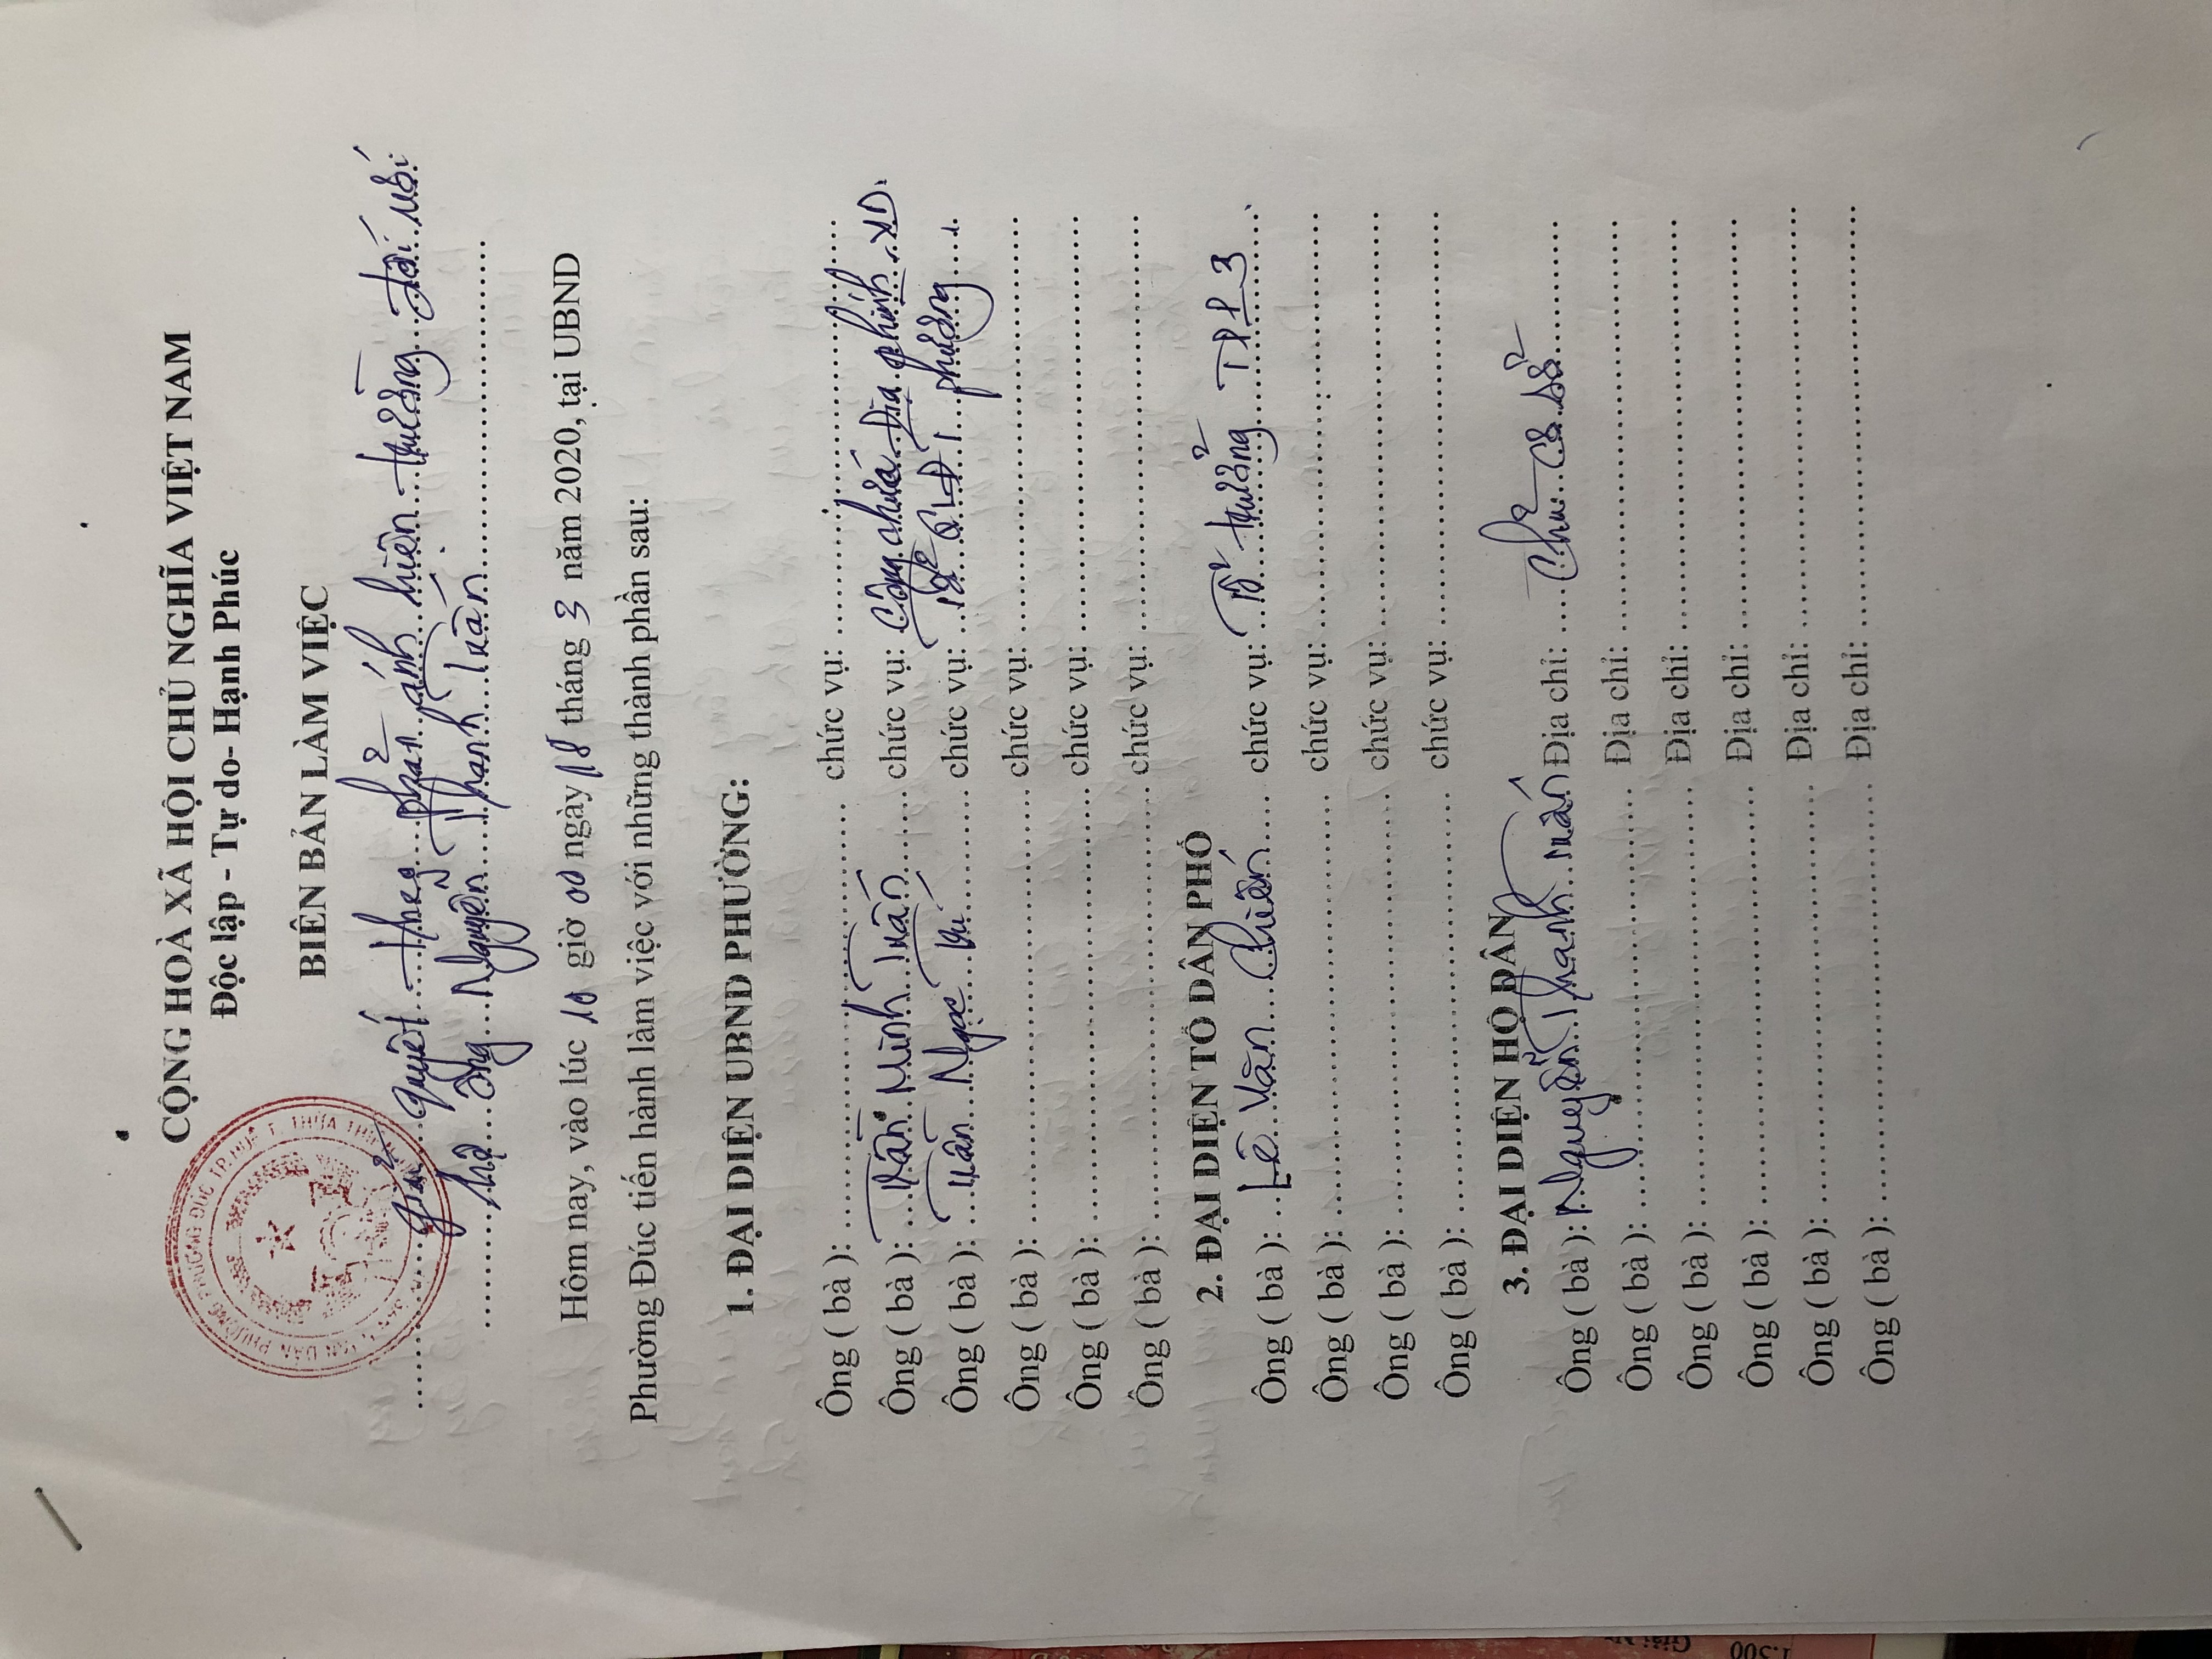 CỘNG HOÀ XÃ HỘI CHỦ NGHĨA VIỆT NAM
Độc lập - Tự do- Hạnh Phúc
BIÊN BẢN LÀM VIỆC
Giải quyết theo phản ánh hiện trường đối với
nhà ông Nguyễn Thanh Tuấn
Hôm nay, vào lúc 10 giờ 00 ngày 18 tháng 3 năm 2020, tại UBND
Phường Đúc tiến hành làm việc với những thành phần sau:
1. ĐẠI DIỆN UBND PHƯỜNG:
Ông ( bà ): chức vụ:
Ông ( bà ): Trần Minh Tuấn chức vụ: Công chức Địa chính XD.
Ông ( bà ): Trần Ngọc Tú chức vụ: Tổ QLĐT phường
Ông ( bà ): chức vụ:
Ông ( bà ): chức vụ:
Ông ( bà ): chức vụ:
2. ĐẠI DIỆN TỔ DÂN PHỐ
Ông ( bà ): Lê Văn Chiến chức vụ: Tổ trưởng TDP 3
Ông ( bà ): chức vụ:
Ông ( bà ): chức vụ:
Ông ( bà ): chức vụ:
3. ĐẠI DIỆN HỘ DÂN
Ông ( bà ): Nguyễn Thanh Tuấn Địa chỉ: Chủ cơ sở
Ông ( bà ): Địa chỉ:
Ông ( bà ): Địa chỉ:
Ông ( bà ): Địa chỉ:
Ông ( bà ): Địa chỉ:
Ông ( bà ): Địa chỉ:
1.300